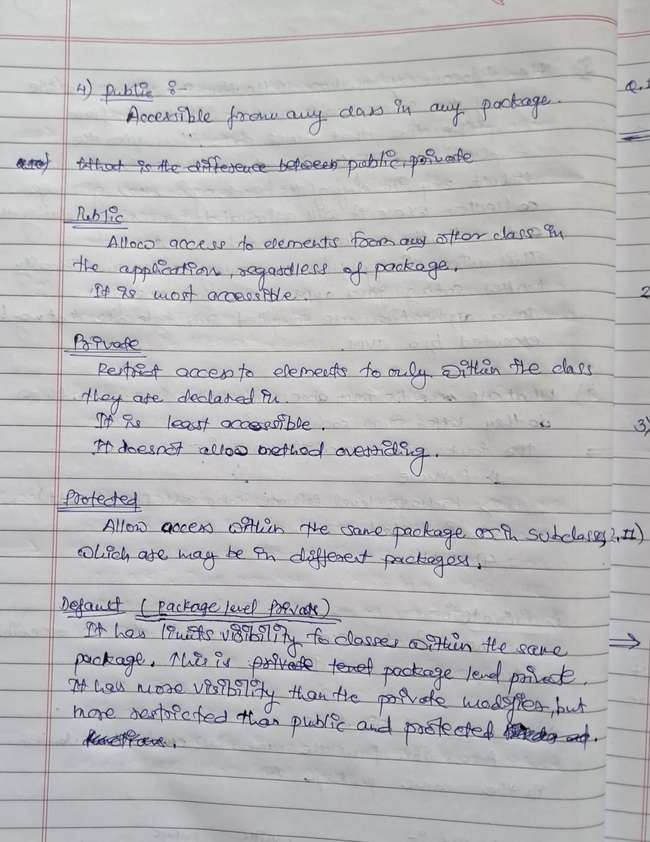 4) Public :-
Accessible from any class in any package.
Q.1
What is the difference between public, private
Public
Allow access to elements from any other class in
the application, regardless of package.
It is most accessible.
2
Private
Restrict access to elements to only within the class
they are declared in.
It is least accessible.
3)
It doesnot allow method overriding.
Protected
Allow access within the same package or in subclasses,
which are may be in different packages.
Default (package level private)
It has limits visibility to classes within the same
package. This is private package level private.
It has more visibility than the private modifier, but
more restricted than public and protected